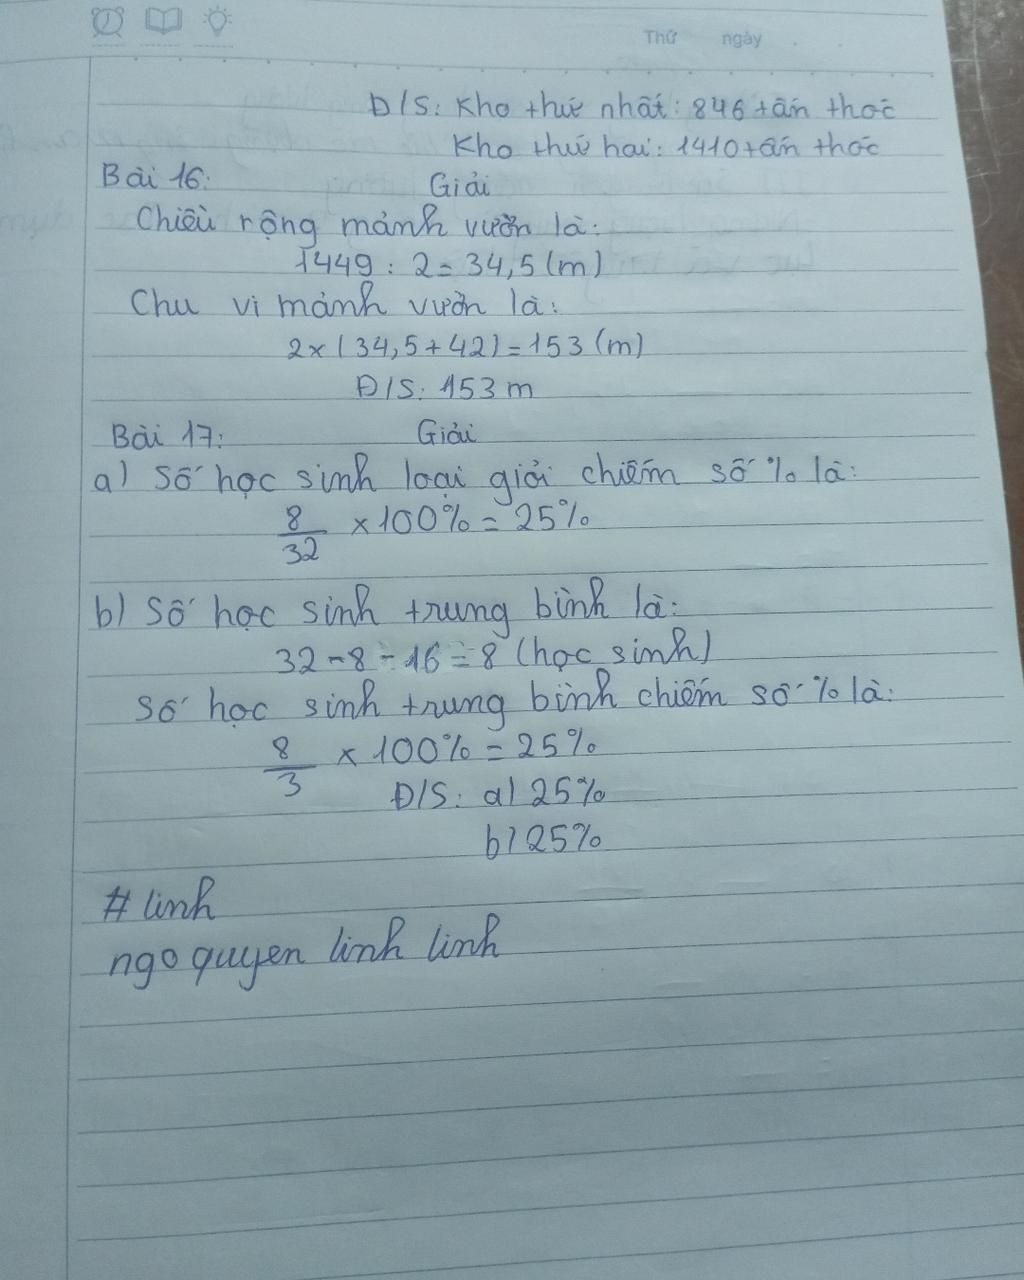 Thứ ngày
Đ/S: Kho thứ nhất: 846 tấn thóc
Kho thứ hai: 1410 tấn thóc
Bài 16: Giải
Chiều rộng mảnh vườn là:
1449 : 2 = 34,5 (m)
Chu vi mảnh vườn là:
2 x (34,5 + 42) = 153 (m)
Đ/S: 153 m
Bài 17: Giải
a) Số học sinh loại giỏi chiếm số % là:
8/32 x 100% = 25%
b) Số học sinh trung bình là:
32 - 8 - 16 = 8 (học sinh)
Số học sinh trung bình chiếm số % là:
8/3 x 100% = 25%
Đ/S: a) 25%
b) 25%
# linh
ngo quyen linh linh